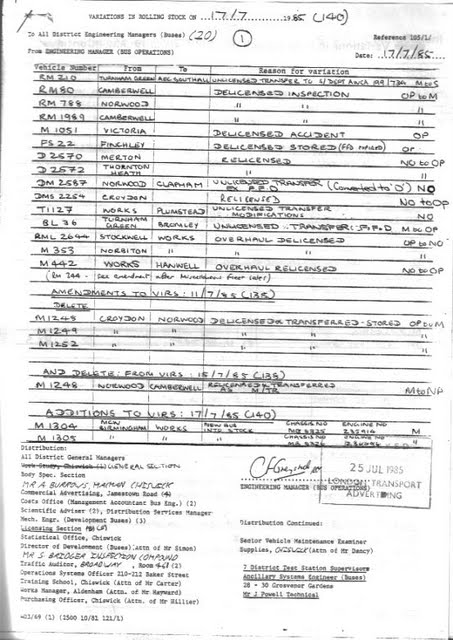 VARIATIONS IN ROLLING STOCK ON 17/7 1985 (140)
To All District Engineering Managers (Buses) (20) 1 Reference 105/1/
From ENGINEERING MANAGER (BUS OPERATIONS) Date: 17/7/85.
Vehicle Number From To Reason for variation
RM 210 TURNHAM GREEN AEC SOUTHALL UNLICENSED TRANSFER TO M to S
RM80 CAMBERWELL DELICENSED INSPECTION OP to M
RM 788 NORWOOD " "
RM 1989 CAMBERWELL " "
M 1051 VICTORIA DELICENSED ACCIDENT OP
FS 22 FINCHLEY DELICENSED STORED OP
D 2570 MERTON RELICENSED NO to OP
D 2572 THORNTON HEATH " "
DM 2587 NORWOOD CLAPHAM UNLICENSED TRANSFER F.F.D (Converted to 'D') NO
DMS 2254 CROYDON RELICENSED NO to OP
T1127 WORKS PLUMSTEAD UNLICENSED TRANSFER MODIFICATIONS NO
BL 36 TURNHAM GREEN BROMLEY UNLICENSED TRANSFER F.F.D M to OP
RML 2644 STOCKWELL WORKS OVERHAUL DELICENSED OP to NO
M 353 NORBITON " " "
M 442 WORKS HANWELL OVERHAUL RELICENSED NO to OP
AMENDMENTS TO VIRS: 11/7/85 (136)
DELETE
M 1248 CROYDON NORWOOD DELICENSED & TRANSFERRED - STORED OP to M
M 1249 " " " "
M 1252 " " " "
AND DELETE: FROM VIRS: 15/7/85 (138)
M 1248 NORWOOD CAMBERWELL RELICENSED & TRANSFERRED AS M/TR M to NP
ADDITIONS TO VIRS: 17/7/85 (140)
M 1304 MCW BIRMINGHAM WORKS NEW BUS INTO STOCK CHASSIS NO ENGINE NO M
M 1305 " " " CHASSIS NO ENGINE NO
Distribution:
All District General Managers
Work Study, Chiswick (1) GENERAL SECTION
Body Spec. Section
MR A BURROWS, CHISWICK
Commercial Advertising, Jamestown Road
Costs Office (Management Accountant Bus Eng.) (2)
Scientific Adviser (2), Distribution Services Manager
Mech. Engr. (Development Buses) (3)
Licensing Section
Statistical Office, Chiswick
Director of Development (Buses) (Attn of Mr Simon)
MR S BRIDGER INSPECTION COMPOUND
Traffic Auditor, BROADWAY, Room
Operations Systems Officer 210-212 Baker Street
Training School, Chiswick (Attn of Mr Carter)
Works Manager, Aldenham (Attn of Mr Hayward)
Purchasing Officer, Chiswick (Attn of Mr Hillier)
(1) (2500 10/81 121/1)
ENGINEERING MANAGER (BUS OPERATIONS)
25 JUL 1985
LONDON TRANSPORT
ADVERTISING
Distribution Continued:
Senior Vehicle Maintenance Examiner
Supplies, CHISWICK (Attn of Mr Dancy)
7 District Test Station Supervisors
Ancillary Systems Engineer (Buses)
28 - 30 Grosvenor Gardens
Mr J Powell Technical